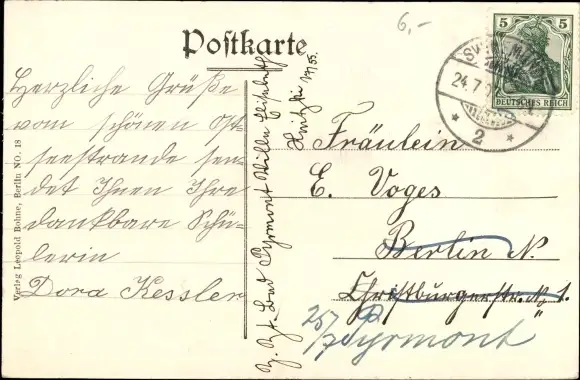 6,-
Postkarte
5 5
DEUTSCHES REICH
24.7.
* 2 *
Herzliche Grüße
vom schönen Ost=
seestrande sen=
det Ihnen Ihre
dankbare Schü=
lerin
Dora Kessler
Verlag Leopold Bohne, Berlin NO. 18
z. Zt. Bad Pyrmont Villa Elisabeth
Fräulein
E. Voges
Berlin N.
Christburgerstr. No 1.
25/7 Pyrmont